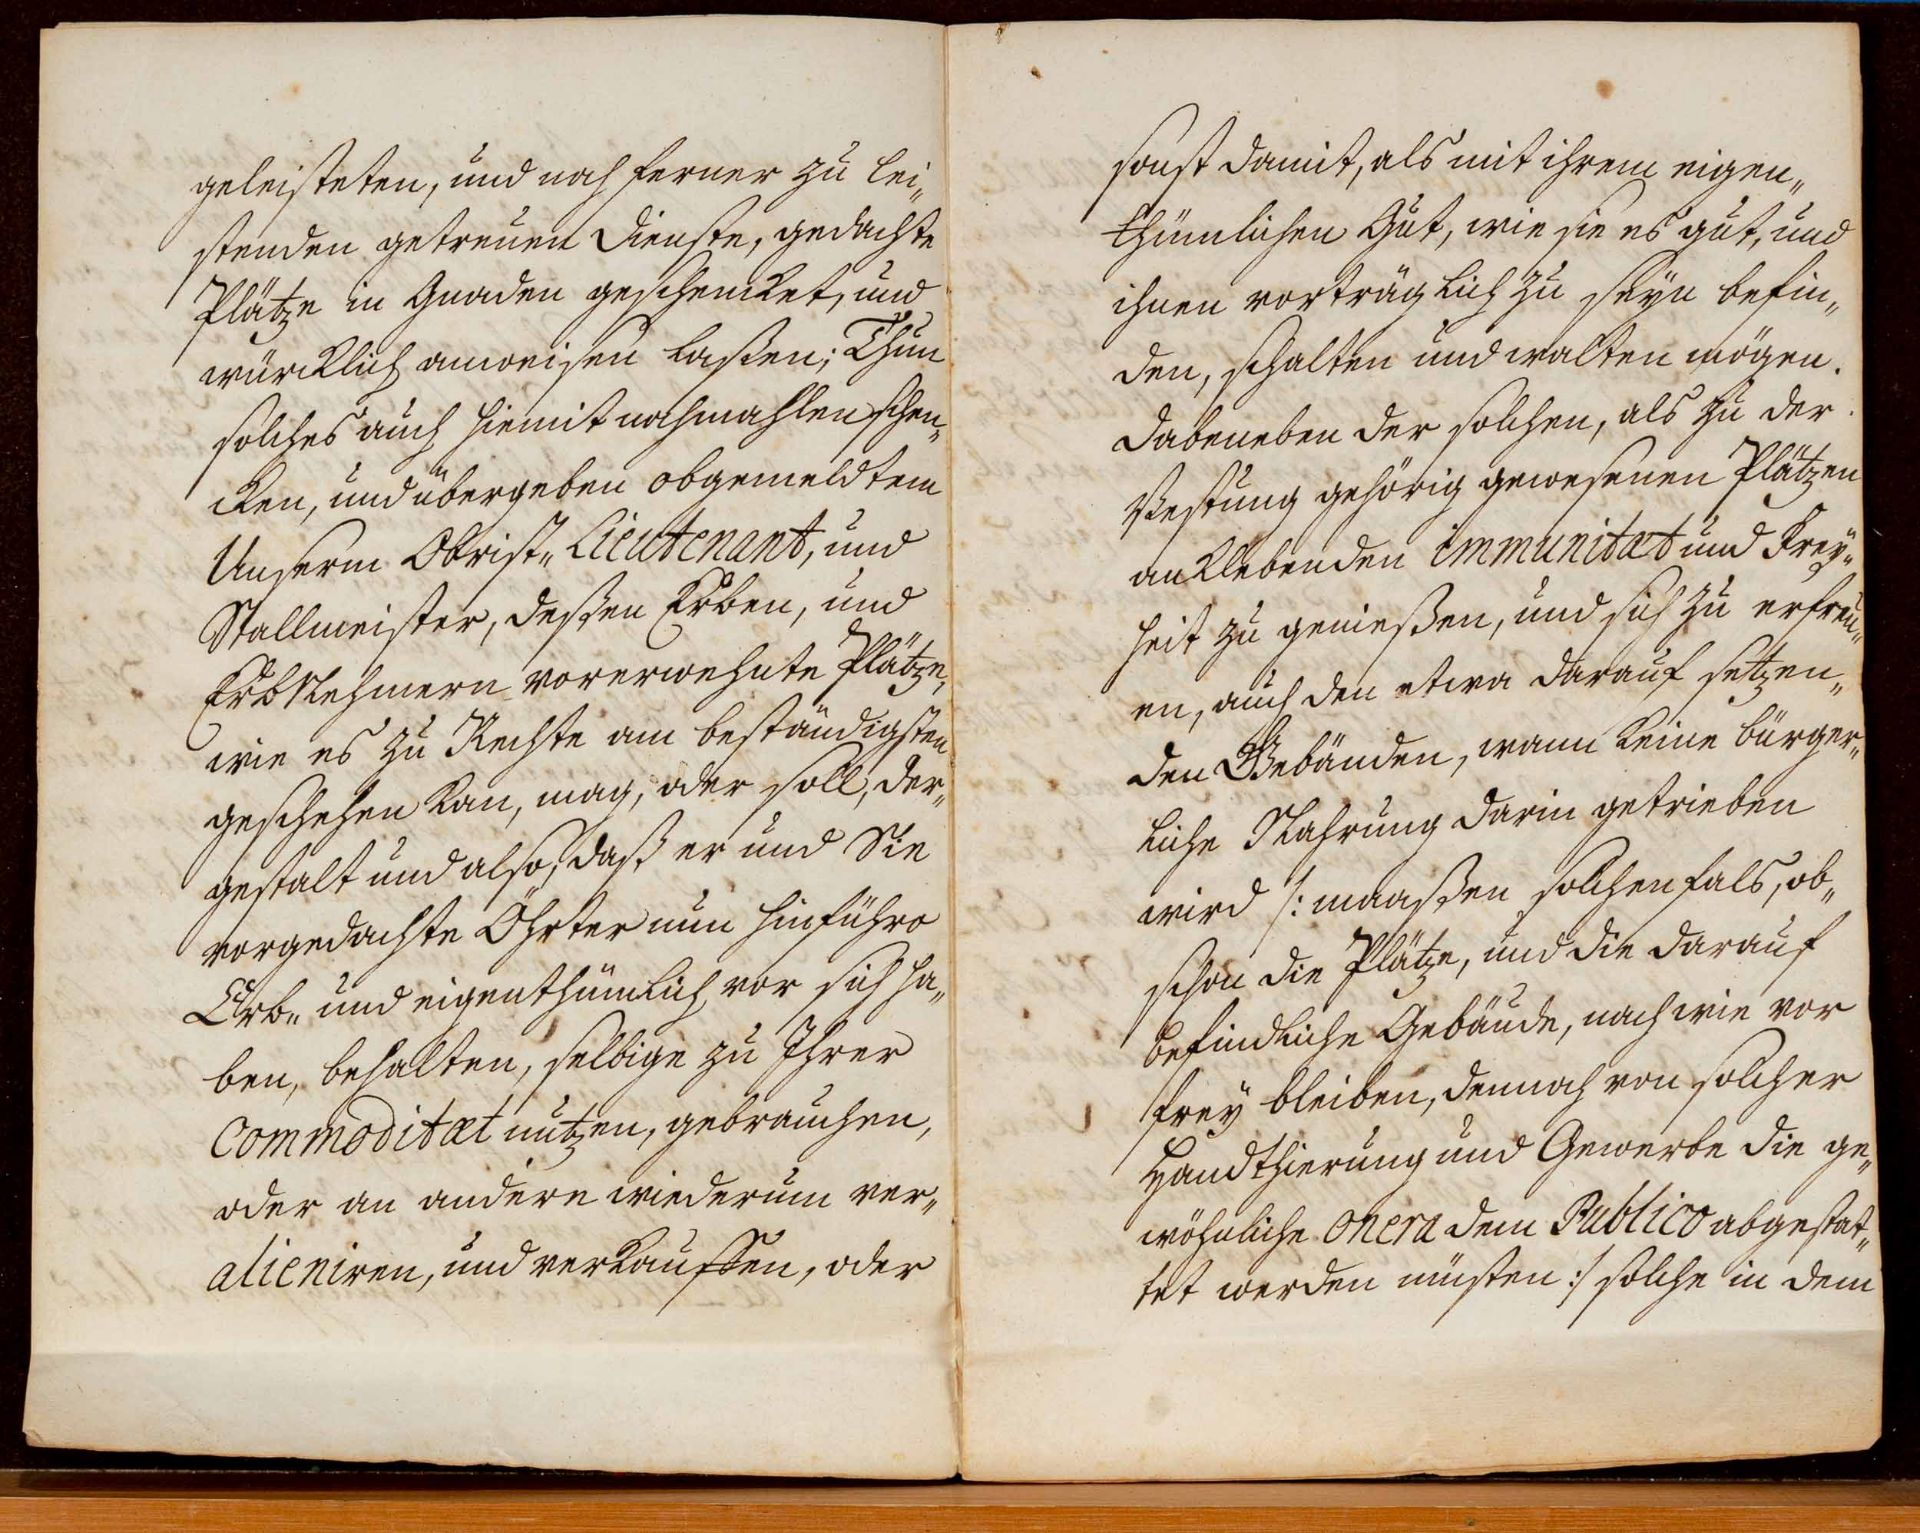 geleisteten, und noch ferner zu lei„
stenden getreuen Dienste, gedachte
Plätze in Gnaden geschencket, und
würcklich anweisen laßen; Thun
solches auch hiemit nochmahlen schen„
cken, und übergeben obgemeldtem
Unserm Obrist„ Lieutenant, und
Stallmeister, deßen Erben, und
Erbnehmern vorerwehnte Plätze,
wie es zu Rechte am beständigsten
geschehen kan, mag, oder soll, der„
gestalt und also, daß er und Sie
vorgedachte Öhrter nun hinführo
Erb„ und eigenthümlich vor sich ha„
ben, behalten, selbige zu Ihrer
Commoditæt nutzen, gebrauchen,
oder an andere wiederum ver„
alieniren, und verkauffen, oder
sonst damit, als mit ihrem eigen„
thümlichen Gut, wie sie es gut, und
ihnen vorträglich zu seyn befin„
den, schalten und walten mögen.
Dabeneben der solchen, als zu der
Vestung gehörig gewesenen Plätzen
anklebenden immunitæt und Frey„
heit zu genießen, und sich zu erfreu„
en, auch den etwa darauf setzen„
den Gebäuden, wann keine bürger„
liche Nahrung darin getrieben
wird /: maaßen solchenfals, ob„
schon die Plätze, und die darauf
befindliche Gebäude, nach wie vor
frey bleiben, dennoch von solcher
Handthierung und Gewerbe die ge„
wöhnliche onera dem Publico abgestat„
tet werden müsten :/ solche in dem